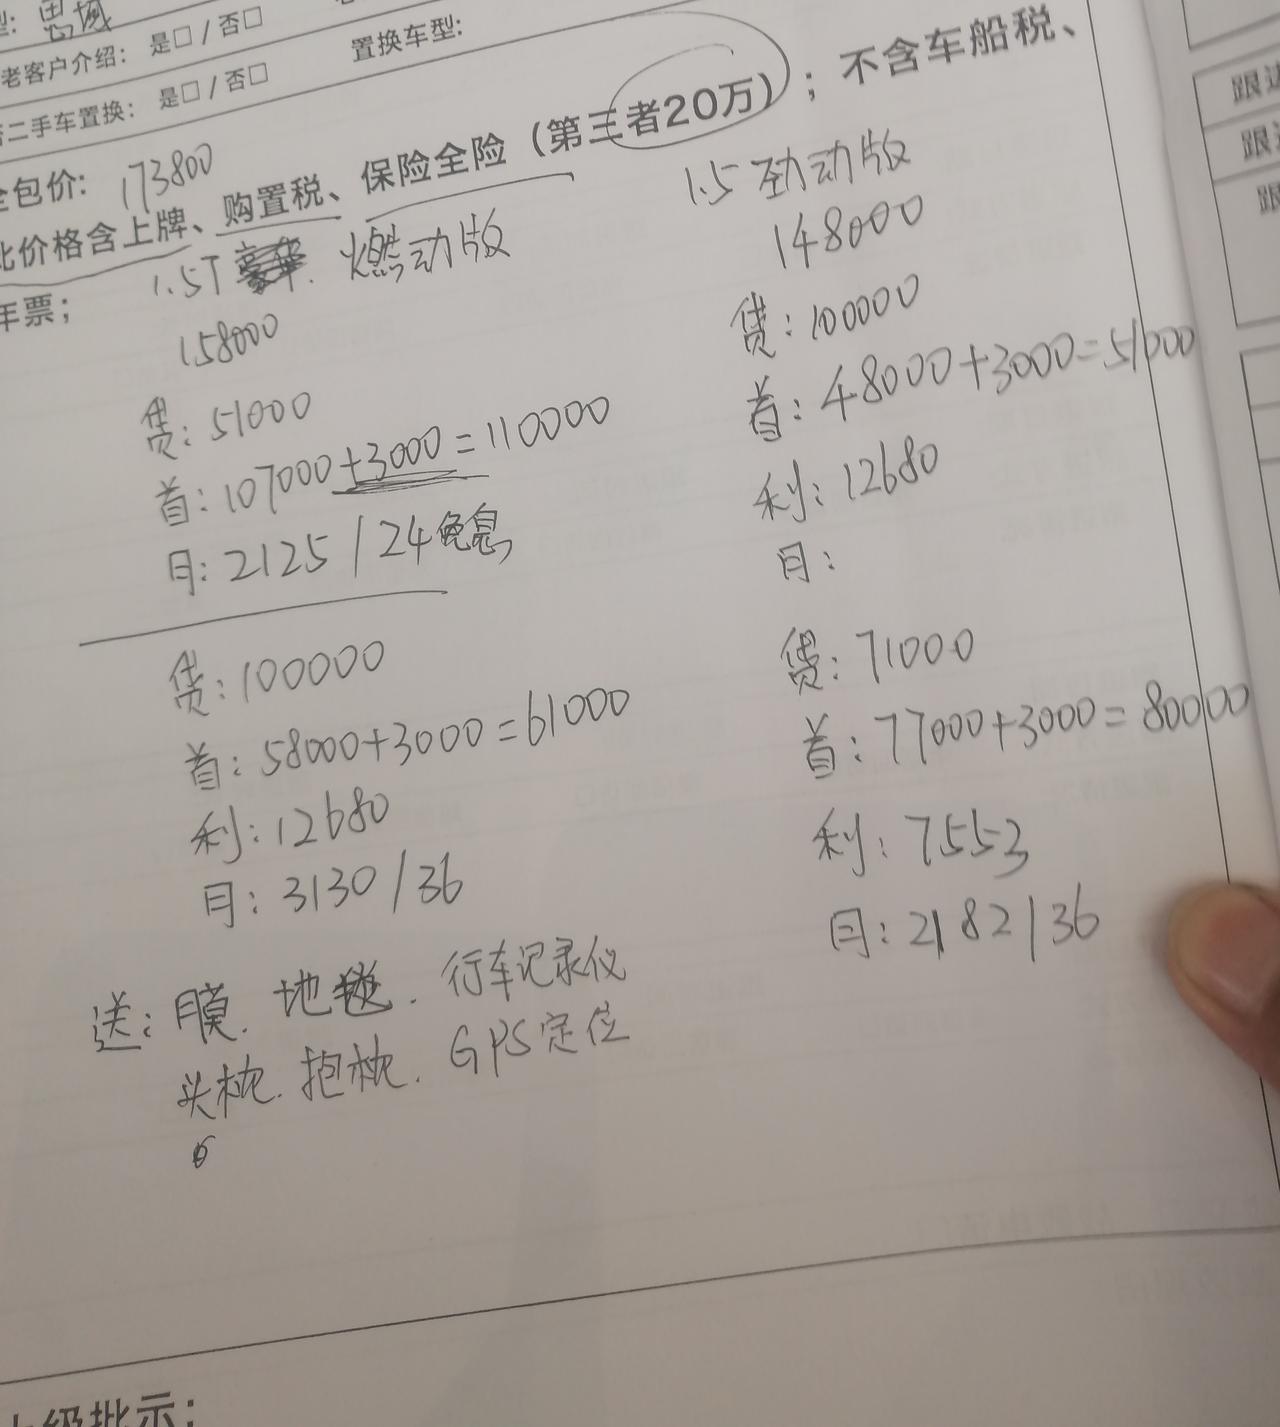 型: 思域
老客户介绍: 是□ / 否□
二手车置换: 是□ / 否□
置换车型:
全包价: 173800
此价格含上牌、购置税、保险全险（第三者20万）; 不含车船税、
年票;
1.5T 燃动版
158000
贷: 51000
首: 107000+3000=110000
月: 2125 / 24免息
贷: 100000
首: 58000+3000=61000
利: 12680
月: 3130 / 36
送: 膜. 地毯. 行车记录仪
头枕. 抱枕. GPS定位
1.5 劲动版
148000
贷: 100000
首: 48000+3000=51000
利: 12680
月:
贷: 71000
首: 77000+3000=80000
利: 7553
月: 2182 / 36
上级批示: